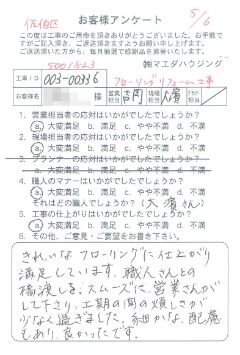 佐伯区
お客様アンケート
5/6
この度は工事のご用命を頂きありがとうございました。お手数で
すがご記入頂き、ご返送頂きますようお願い申し上げます。
ご返送頂いた方から、毎月抽選で感謝品を進呈いたします。
㈱マエダハウジング
工事ID
003-00396
フローリングリフォーム工事
お客様名
様
営業担当
吉岡
現場担当
大濱
1. 営業担当者の応対はいかがでしたでしょうか?
a. 大変満足 b. 満足 c. やや不満 d. 不満
2. 工事担当者の応対はいかがでしたでしょうか?
a. 大変満足 b. 満足 c. やや不満 d. 不満
3. プランナーの応対はいかがでしたでしょうか?
a. 大変満足 b. 満足 c. やや不満 d. 不満
4. 職人のマナーはいかがでしたでしょうか?
a. 大変満足 b. 満足 c. やや不満 d. 不満
それはどの職人でしょうか?(大濱さん)
5. 工事の仕上がりはいかがでしたでしょうか?
a. 大変満足 b. 満足 c. やや不満 d. 不満
6. その他、ご意見・ご要望をお書き下さい。
きれいなフローリングに仕上がり
満足しています。職人さんとの
橋渡しも、スムーズに、営業さんが
して下さり、工期の間の煩しさが
少なく過ぎました。細かな、配慮
もあり、良かったです。